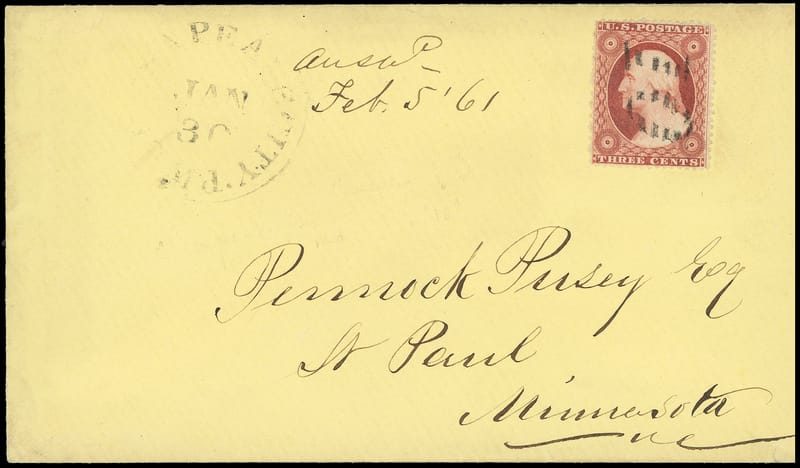 APEA
CITY. P
JAN
30
answd
Feb. 5 '61
U.S. POSTAGE
THREE CENTS
Pennock Pusey Esq
St Paul
Minnesota